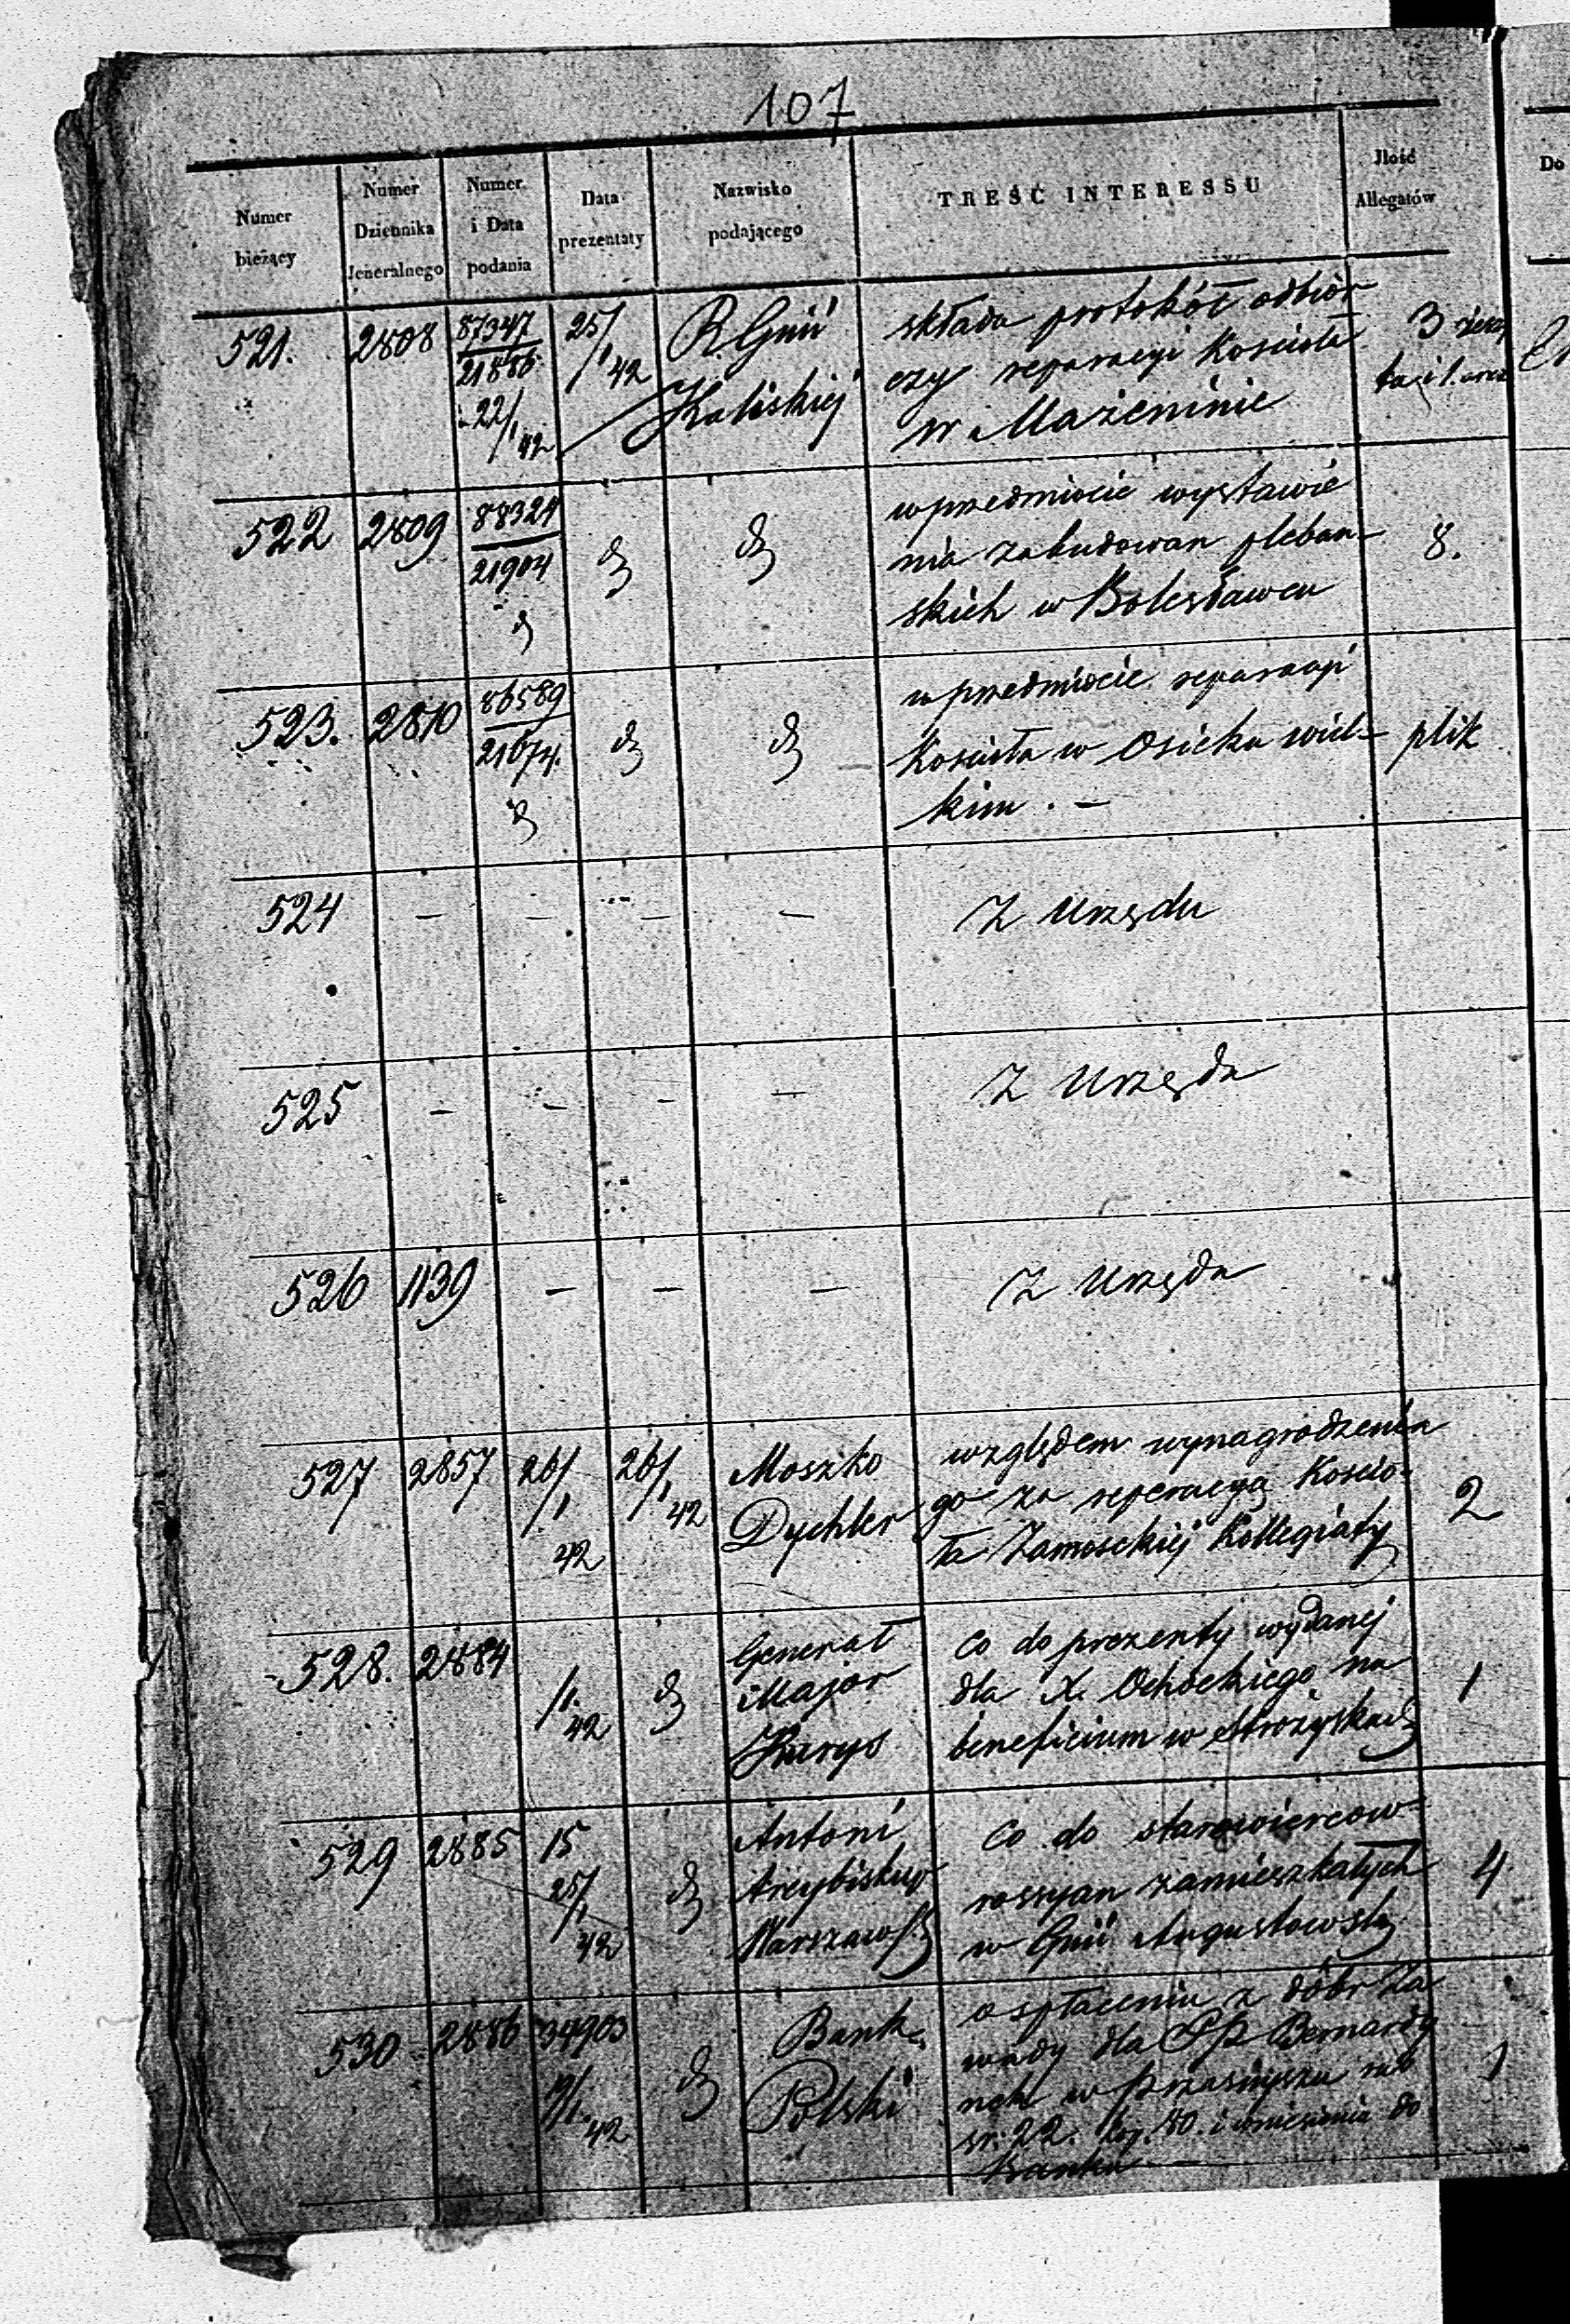 107
Numer bieżący
Numer Dziennika Jeneralnego
Numer i Data podania
Data prezentaty
Nazwisko podającego
TREŚĆ INTERESSU
Jlość Allegatów
Do
521. 2808 87347/21886 22/1 42 25/1 42 R. Gnii Kaliskiej
składa protokół odbior
czy reparacyi Kościoła
w Mażeninie
3
522 2809 88324/21904 d° d° d°
w przedmiocie wystawie
nia zabudowan pleban-
skich w Bolesławcu
8.
523. 2810 86589/21674. d° d° d°
w przedmiocie reparacyi
Kościoła w Osieku wiel-
kim. —
plik
524 — — — —
Z Urzędu
525 — — — —
Z Urzędu
526 1139 — — —
Z Urzędu
527 2857 26/1 42 26/1 42 Moszko Dychter
względem wynagrodzenia
go za reperacyą Kościo-
ła Zamosckiej Kollegiaty
2
528. 2884 /1. 42 d° Generał Major Kurys
Co do prezenty wydanej
dla X. Ochockiego na
beneficium w Strożyskach
1
529 2885 15 25/1 42 d° Antoni Arcybiskup Warszaws.
Co do starowiercow
rossyan zamieszkałych
w Gnii Augustowsk.
4
530 2886 34903 19/1. 42 d° Bank Polski
o spłaceniu z dóbr Za
wady dla PP Bernardy
nek w Przasnyszu rub
sr: 22. kop. 80. i wniesieniu do
Banku —
1